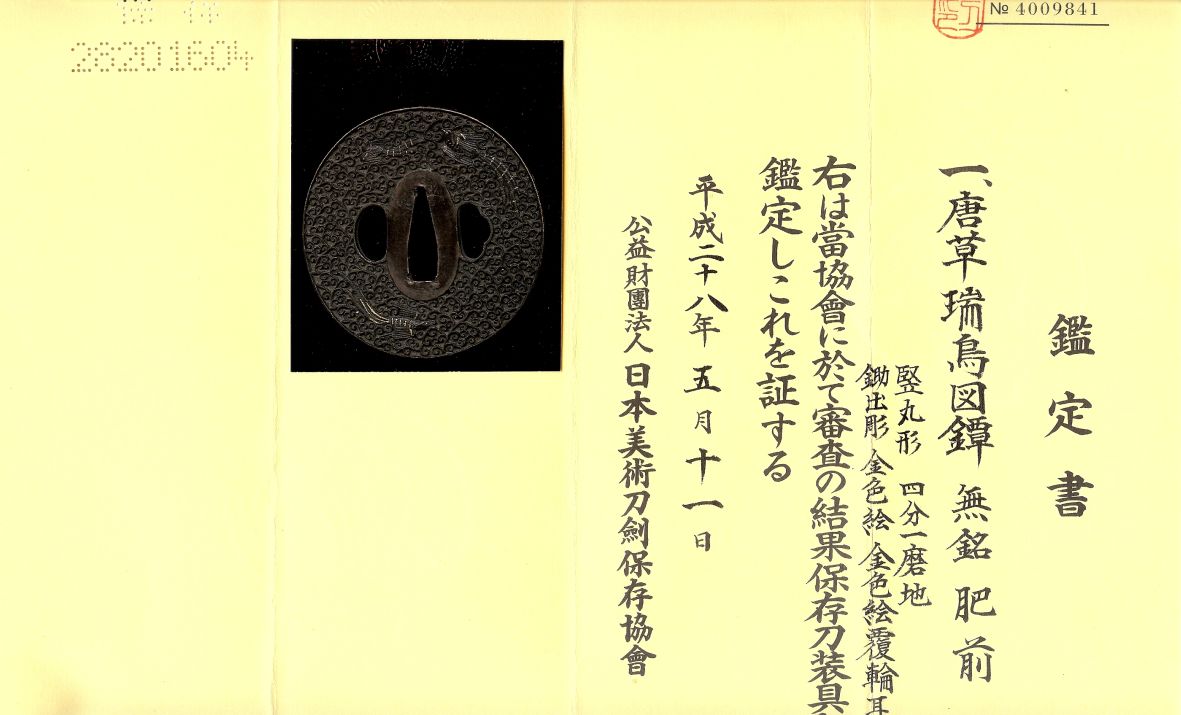 № 4009841
鑑定書
一、唐草瑞鳥図鐔 無銘 肥前
竪丸形 四分一磨地
鋤出彫 金色絵 金色絵覆輪耳
右は當協會に於て審査の結果保存刀装具
鑑定しこれを証する
平成二十八年 五月十一日
公益財團法人 日本美術刀劍保存協會
28201604